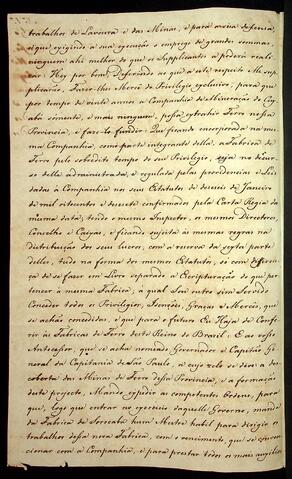 trabalhos de Lavoura e das Minas, e para a sua defeza
e que exigindo a sua execução o emprego de grandes sommas,
ninguem ahi melhor do que os Supplicantes a poderá reali-
sar: Hey por bem, Deferindo ao que a este respeito Me sup-
plicarão, Fazer-lhes Mercê de Privilegio exclusivo, para que
por tempo de vinte annos a Companhia de Mineração do Cuya-
bá sómente, e mais ninguem, possa extrahir Ferro nessa
Provincia, e faze-lo fundir: Que ficando encorporada na mes-
ma Companhia, como parte integrante della, a Fabrica de
Ferro pelo sobredito tempo do seu Privilegio, seja no decur-
so delle administrada, e regulada pelas providencias e Li-
dadas á Companhia nos seus Estatutos de dezeseis de Janeiro
de mil oitocentos e dezesete confirmados pela Carta Regia da
mesma data, tendo o mesmo Inspector, os mesmos Directores,
Concelho e Caixas, e ficando sujeita ás mesmas regras na
distribuição dos seus lucros, com a reserva da septa parte
delles, tudo na forma dos mesmos Estatutos, só com differen-
ça de se fazer em Livro separado a Escripturação do que per-
tencer á mesma Fabrica, a qual Sou outro sim Servido
Conceder todos os Privilegios, Isenções, Graças e Mercês, que
se achão concedidas, e que para o futuro Eu Haja de Confe-
rir ás Fabricas de Ferro deste Reino do Brazil: E ao vosso
Antecessor, que se acha nomeado Governador e Capitão Ge-
neral da Capitania de São Paulo, a cujo zelo se deve a des-
coberta das Minas de Ferro dessa Provincia, e a formação
deste projecto, Mando expedir as competentes Ordens, para
que, logo que entrar no exercicio daquelle Governo, mande
da Fabrica de Sorocaba hum Mestre habil para dirigir os
trabalhos dessa nova Fabrica, com o vencimento, que se conven-
cionar com a Companhia, e para prestar todos os mais auxilios